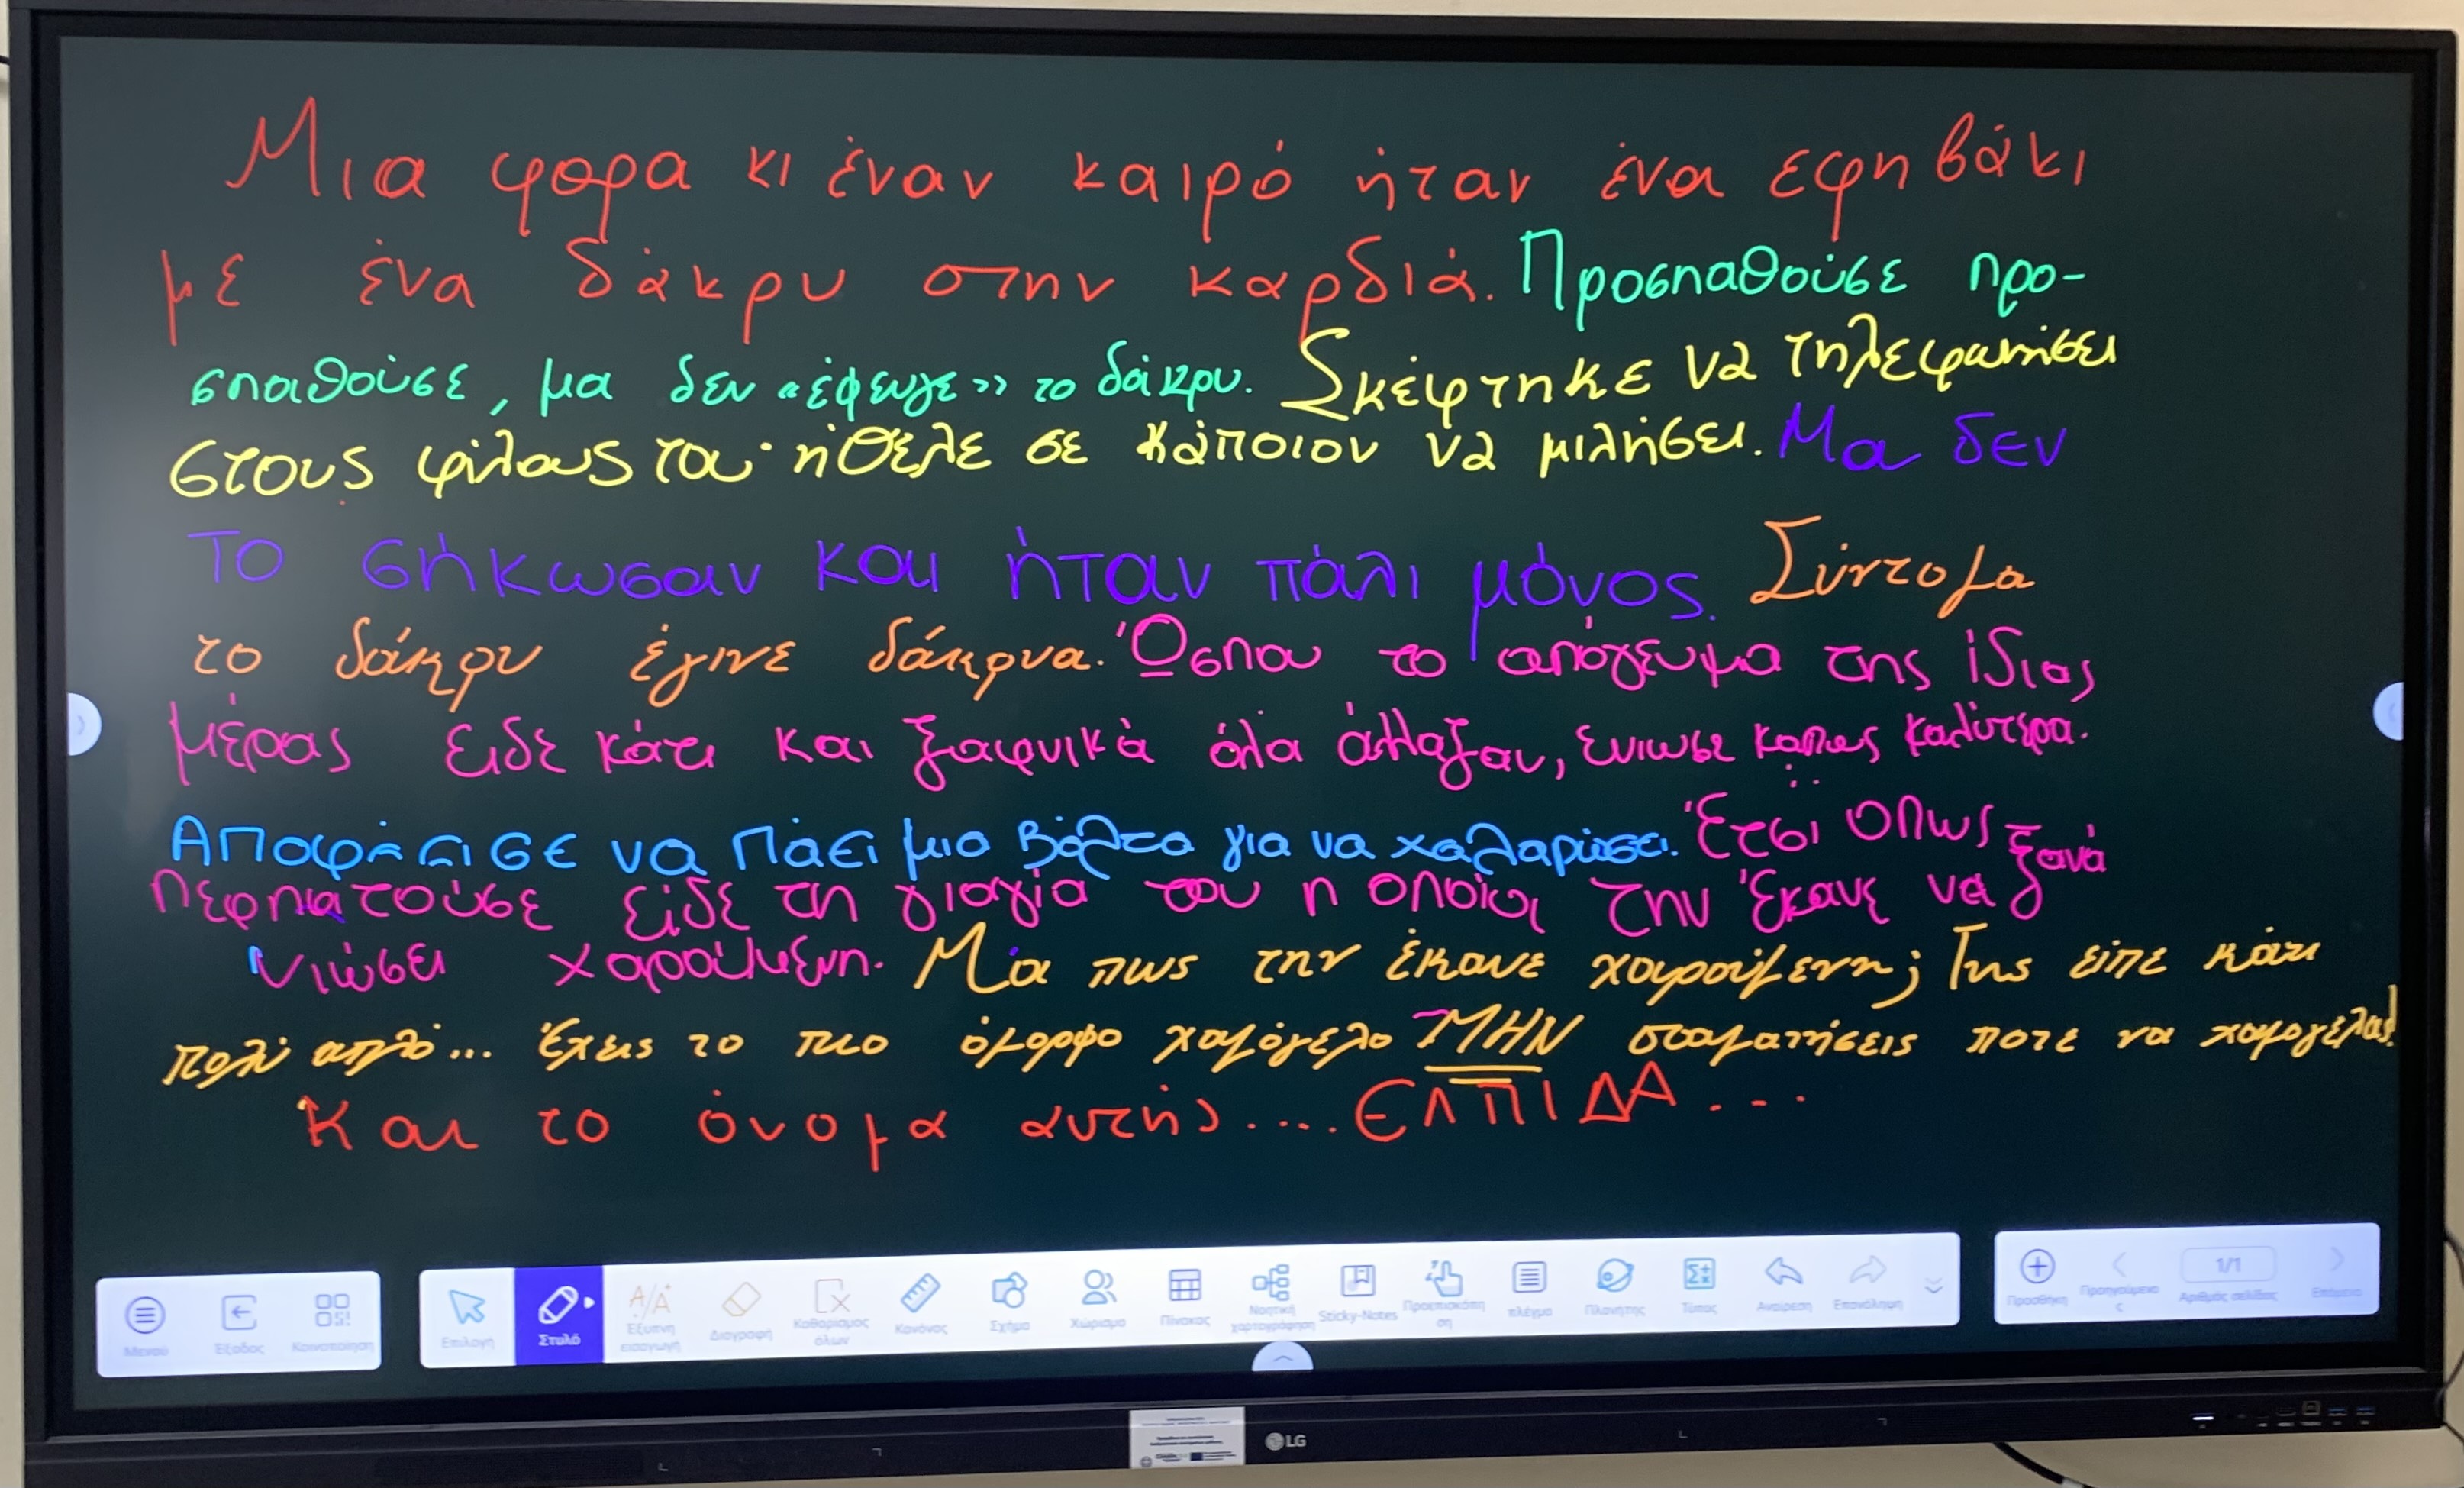 Μια φορα κι έναν καιρό ήταν ένα εφηβάκι
με ένα δάκρυ στην καρδιά. Προσπαθούσε προ-
σπαθούσε, μα δεν «έφευγε» το δάκρυ. Σκέφτηκε να τηλεφωνήσει
στους φίλους του· ήθελε σε κάποιον να μιλήσει. Μα δεν
το σήκωσαν και ήταν πάλι μόνος. Σύντομα
το δάκρυ έγινε δάκρυα. Ώσπου το απόγευμα της ίδιας
μέρας είδε κάτι και ξαφνικά όλα άλλαξαν, ένιωσε κάπως καλύτερα.
Αποφάσισε να πάει μια βόλτα για να χαλαρώσει. Έτσι όπως ξανά
περπατούσε είδε τη γιαγιά του η οποία την έκανε να
νιώσει χαρούμενη. Μα πως την έκανε χαρούμενη; Της είπε κάτι
πολύ απλό... Έχεις το πιο όμορφο χαμόγελο ΜΗΝ σταματήσεις ποτε να χαμογελάς!
Και το όνομα αυτής.... ΕΛΠΙΔΑ...
Μενού
Έξοδος
Κοινοποίηση
Επιλογή
Στυλό
Έξυπνη εισαγωγή
Διαγραφή
Καθαρισμός όλων
Κανόνας
Σχήμα
Χώρισμα
Πίνακας
Νοητική χαρτογράφηση
Sticky-Notes
Προεπισκόπηση
πλέγμα
Πλανήτης
Τύπος
Αναίρεση
Επανάληψη
Προσθήκη
Προηγούμενος
1/1
Αριθμός σελίδας
Επόμενο
LG